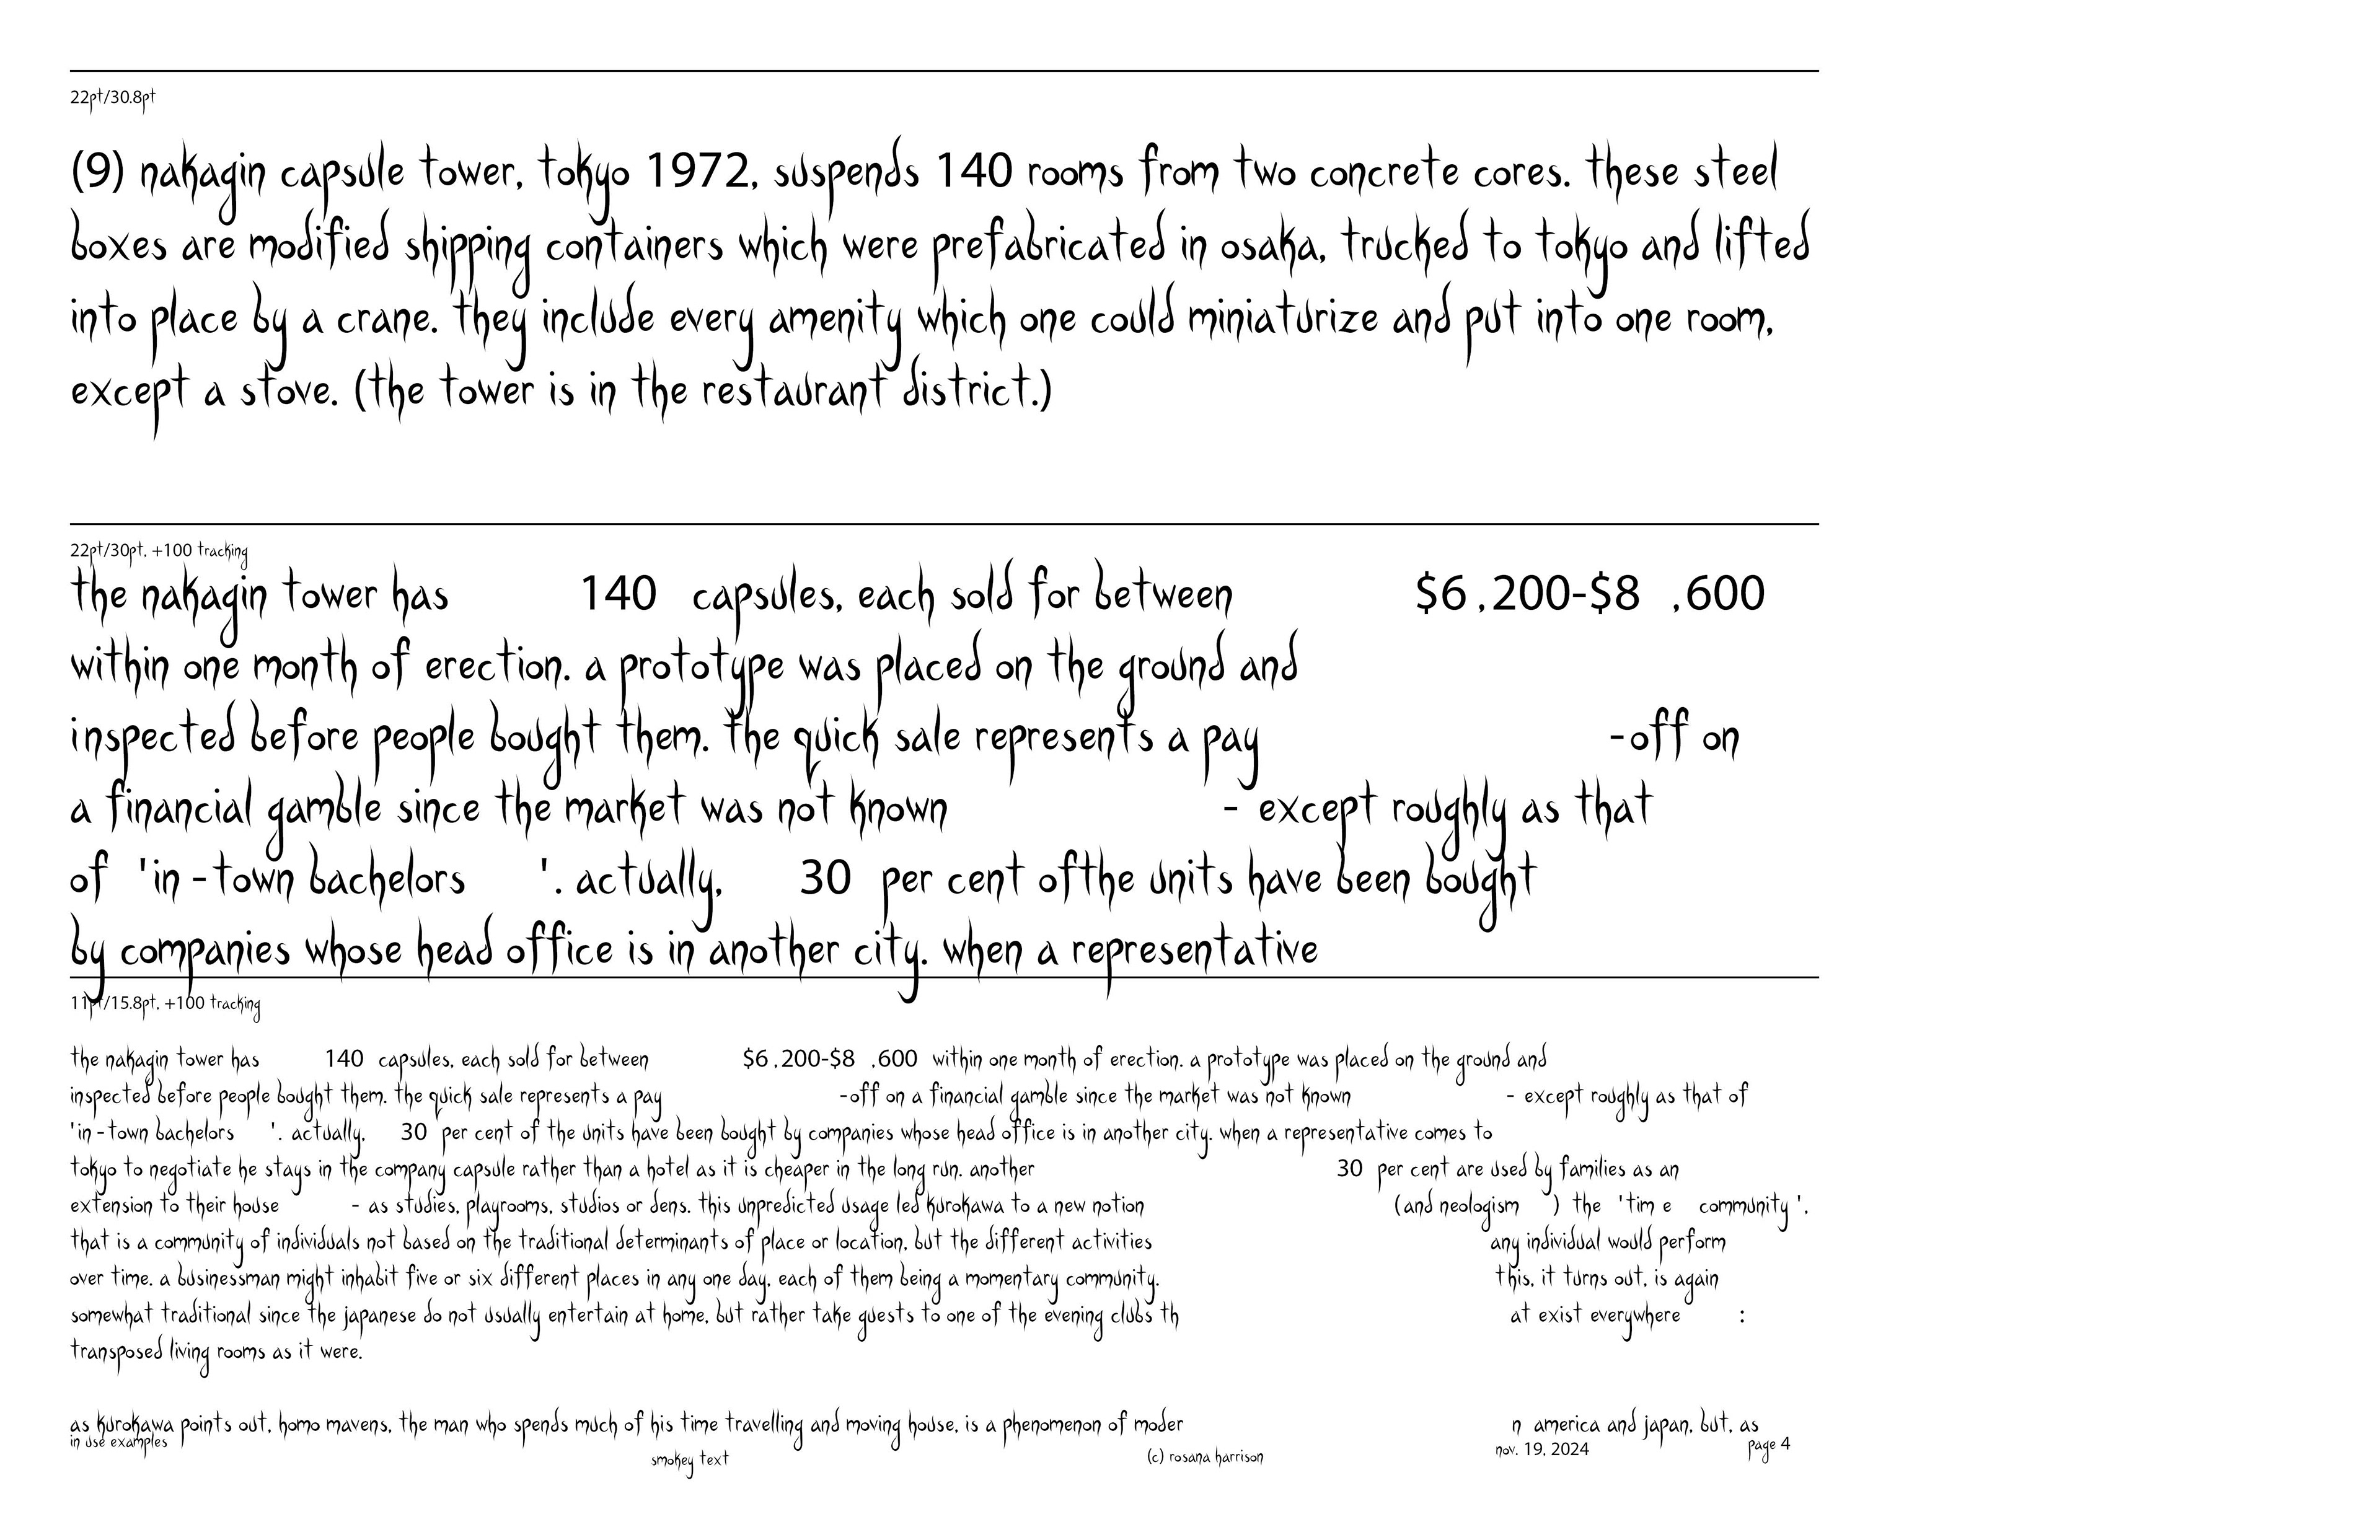 22pt/30.8pt
(9) nakagin capsule tower, tokyo 1972, suspends 140 rooms from two concrete cores. these steel
boxes are modified shipping containers which were prefabricated in osaka, trucked to tokyo and lifted
into place by a crane. they include every amenity which one could miniaturize and put into one room,
except a stove. (the tower is in the restaurant district.)
22pt/30pt, +100 tracking
the nakagin tower has 140 capsules, each sold for between $6,200-$8 ,600
within one month of erection. a prototype was placed on the ground and
inspected before people bought them. the quick sale represents a pay -off on
a financial gamble since the market was not known - except roughly as that
of 'in -town bachelors '. actually, 30 per cent ofthe units have been bought
by companies whose head office is in another city. when a representative
11pt/15.8pt, +100 tracking
the nakagin tower has 140 capsules, each sold for between $6,200-$8 ,600 within one month of erection. a prototype was placed on the ground and
inspected before people bought them. the quick sale represents a pay -off on a financial gamble since the market was not known - except roughly as that of
'in -town bachelors '. actually, 30 per cent of the units have been bought by companies whose head office is in another city. when a representative comes to
tokyo to negotiate he stays in the company capsule rather than a hotel as it is cheaper in the long run. another 30 per cent are used by families as an
extension to their house - as studies, playrooms, studios or dens. this unpredicted usage led kurokawa to a new notion (and neologism ) the 'tim e community '.
that is a community of individuals not based on the traditional determinants of place or location, but the different activities any individual would perform
over time. a businessman might inhabit five or six different places in any one day, each of them being a momentary community. this, it turns out, is again
somewhat traditional since the japanese do not usually entertain at home, but rather take guests to one of the evening clubs th at exist everywhere :
transposed living rooms as it were.
as kurokawa points out, homo mavens, the man who spends much of his time travelling and moving house, is a phenomenon of moder n america and japan, but, as
in use examples
smokey text
(c) rosana harrison
nov. 19, 2024
page 4